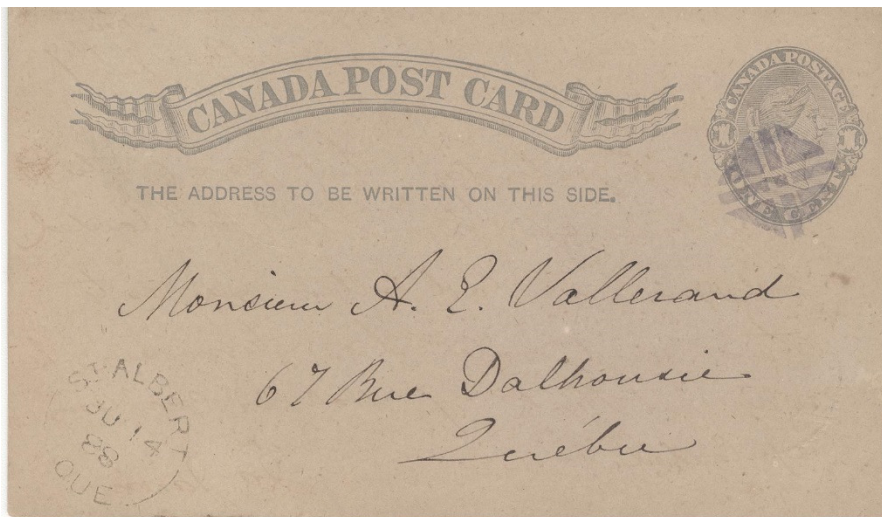 CANADA POST CARD
CANADA POSTAGE
1 1
ONE CENT
THE ADDRESS TO BE WRITTEN ON THIS SIDE.
Monsieur A. E. Vallerand
67 Rue Dalhousie
Québec
ST. ALBERT
JU 14
88
QUE